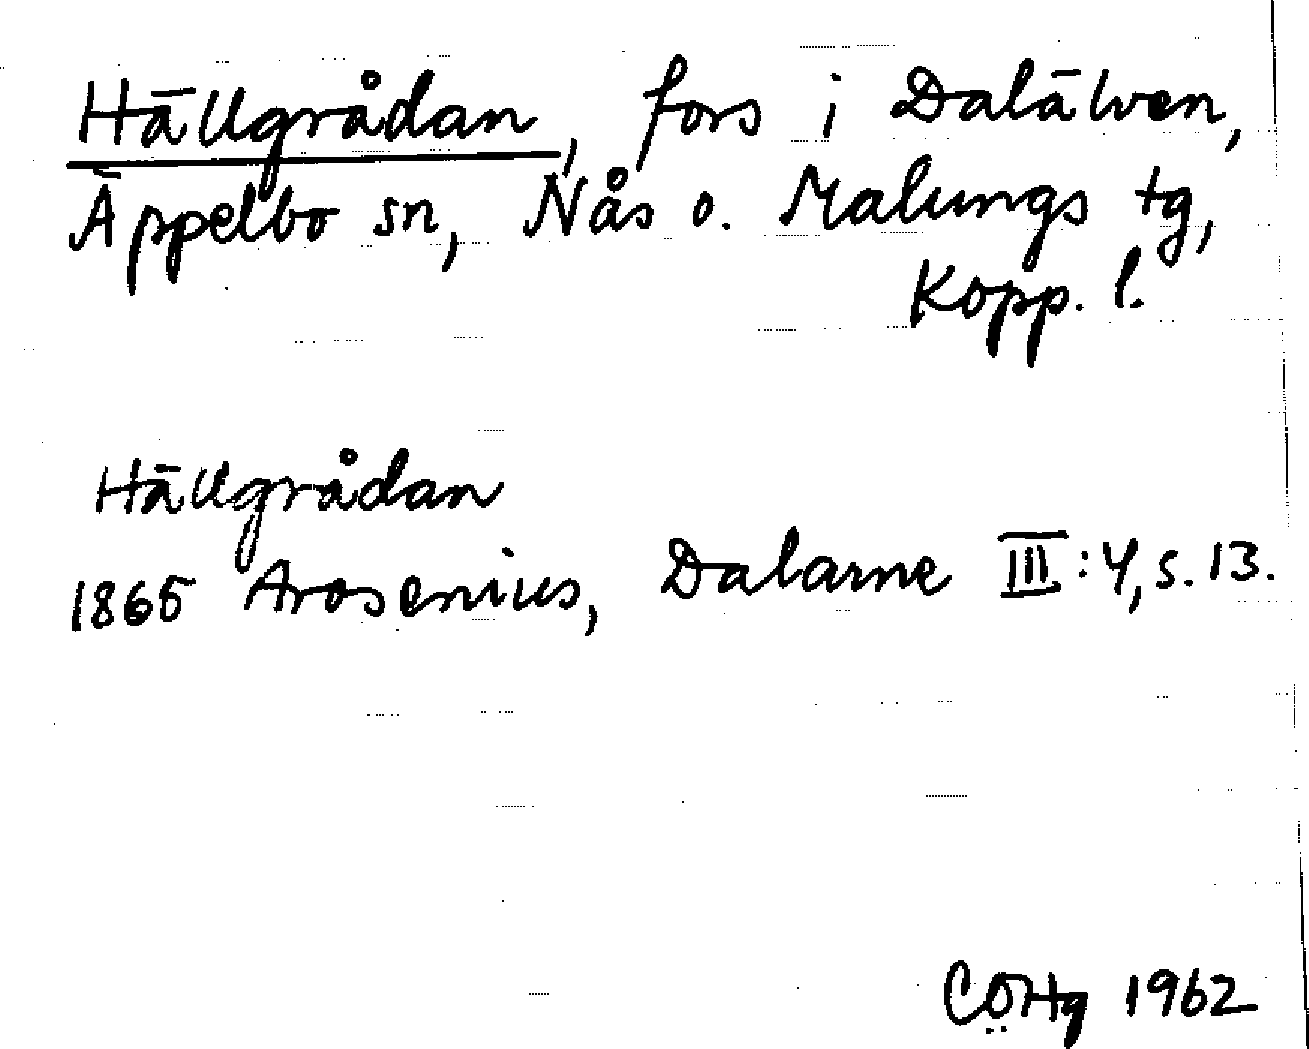 Hällgrådan, fors i Dalälven,
Äppelbo sn, Nås o. Malungs tg,
Kopp. l.
Hällgrådan
1865 Arosenius, Dalarne III:4, s. 13.
CÖHg 1962